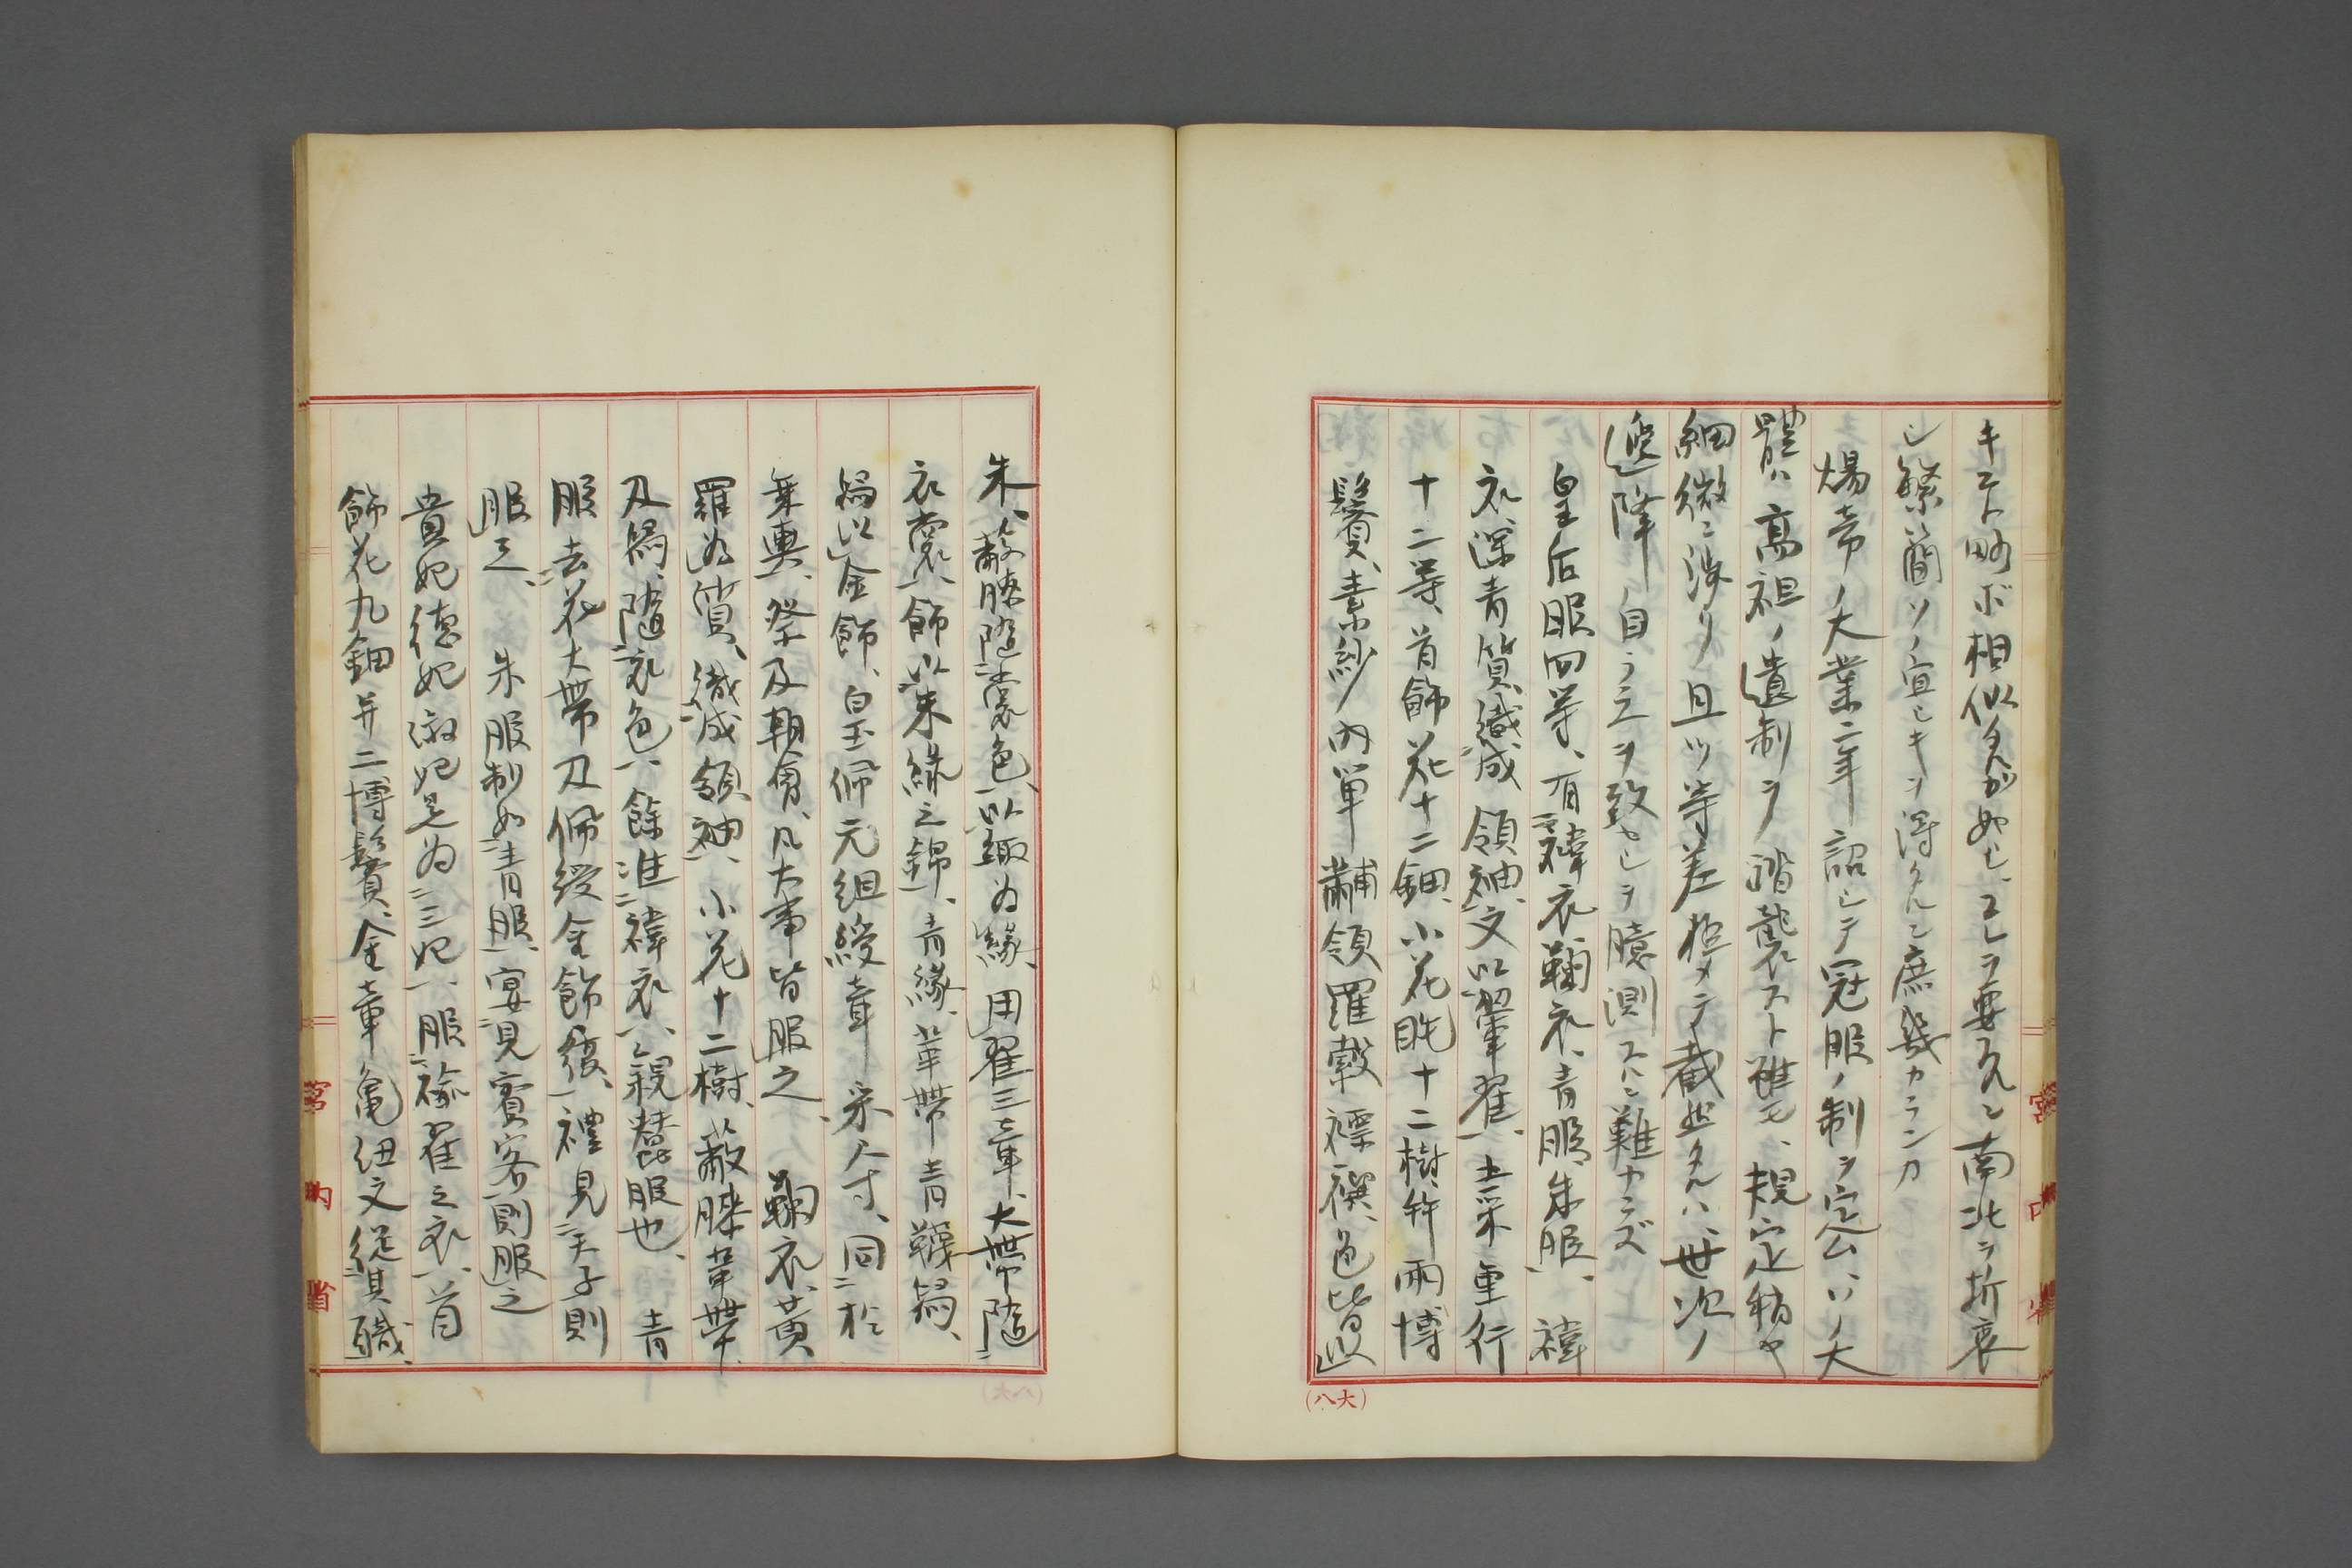 キコト略ボ相似タルガ如シ、コレヲ要スルニ南北ヲ折衷
シ繁簡ソノ宜シキヲ得タルニ庶幾カランカ
煬帝ノ大業二年 詔シテ冠服ノ制ヲ定ム、ソノ大
體ハ高祖ノ遺制ヲ踏襲スト雖モ、規定稍々
細微ニ渉リ且ツ等差極メテ截然タルハ、世次ノ
遞降 自ラ之ヲ致セシヲ臆測スルニ難カラズ
皇后服四等、有褘衣、鞠衣、青服、朱服、 褘
衣、深青質、織成領袖、文以翬翟、五采重行
十二等、首飾花十二鈿、小花毦十二樹、幷兩博
鬢、素紗內單 黼領羅縠褾襈、色皆以
朱、蔽膝隨裳色、以緅為緣、用翟三章、大帶隨
衣裳、飾以朱綠之錦、青緣、革帶青韈舄、
舄以金飾、白玉佩元組綬章 采尺寸、同於
乗輿、祭及朝會、凡大事皆服之、 鞠衣、黃
羅為質、織成領袖、小花十二樹、蔽膝革帶
及舄、隨衣色、餘准褘衣、親蠶服也、 青
服去花大帶及佩綬金飾履、禮見天子則
服之、 朱服制如青服、宴見賓客則服之
貴妃德妃淑妃是為三妃、服褕翟之衣、首
飾花九鈿并二博鬢、金章龜紐文從其職、
宮內省
(大八)